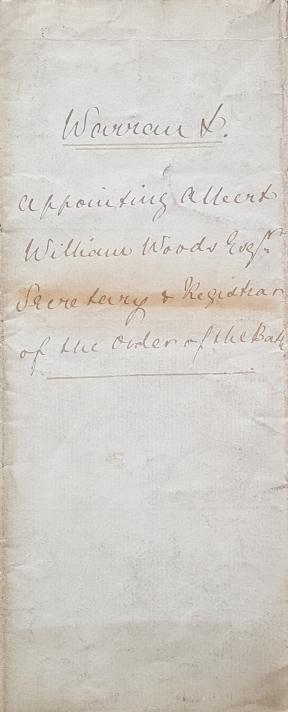 Warrant.
appointing Albert
William Woods Esqr.
Secretary & Registrar
of the Order of the Bath